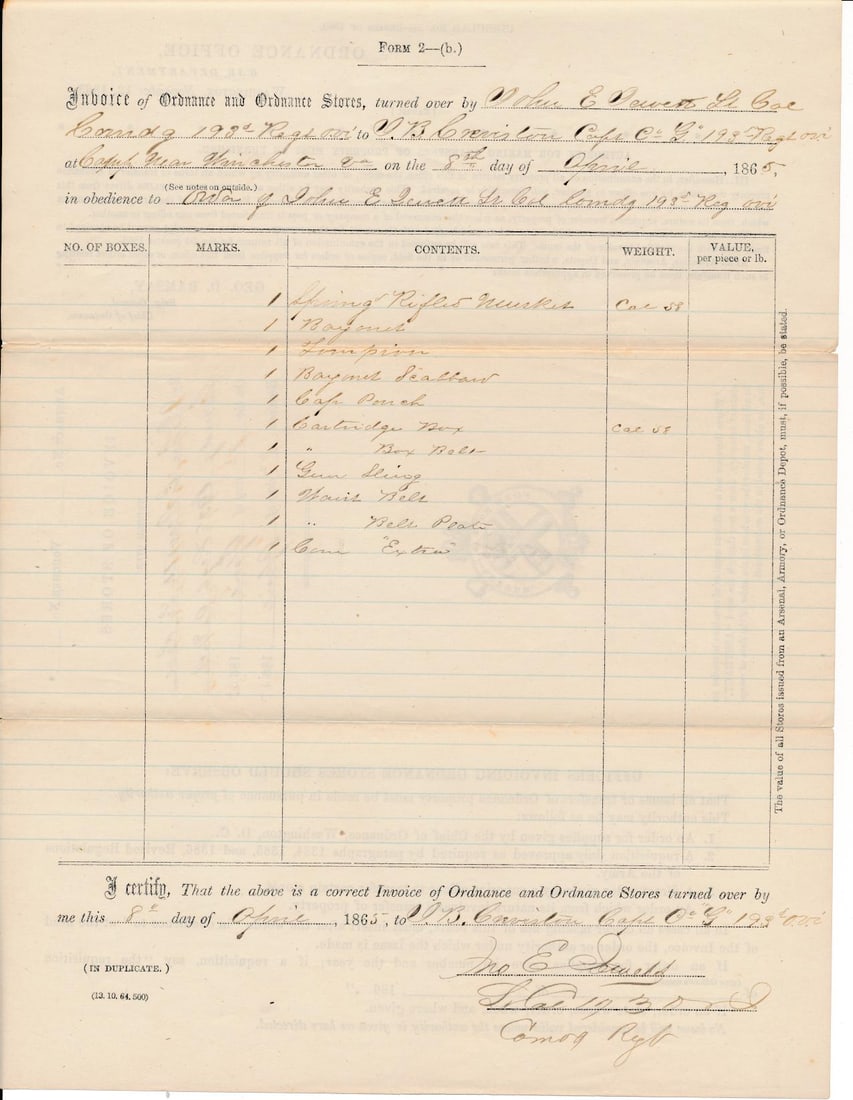 FORM 2—(b.)
Invoice of Ordnance and Ordnance Stores, turned over by John E Jewett Lt Col
Comdg 193d Regt ovi to I. B. Creviston Capt Co "G" 193d Regt ovi
at Camp Near Winchester Va on the 8th day of April, 1865,
(See notes on outside.)
in obedience to Order of John E Jewett Lt Col Comdg 193d Reg ovi
NO. OF BOXES. MARKS. CONTENTS. WEIGHT. VALUE, per piece or lb.
1 Spring'd Rifled Musket Cal 58
1 Bayonet
1 Tompion
1 Bayonet Scabbard
1 Cap Pouch
1 Cartridge Box Cal 58
1 " Box Belt
1 Gun Sling
1 Waist Belt
1 " Belt Plate
1 Cone "Extra"
The value of all Stores issued from an Arsenal, Armory, or Ordnance Depot, must, if possible, be stated.
I certify, That the above is a correct Invoice of Ordnance and Ordnance Stores turned over by
me this 8th day of April, 1865, to I. B. Creviston Capt Co "G" 193d O.V.I
(IN DUPLICATE.)
(13. 10. 64. 500)
Jno E Jewett
Lt Col 193 O V I
Comdg Regt